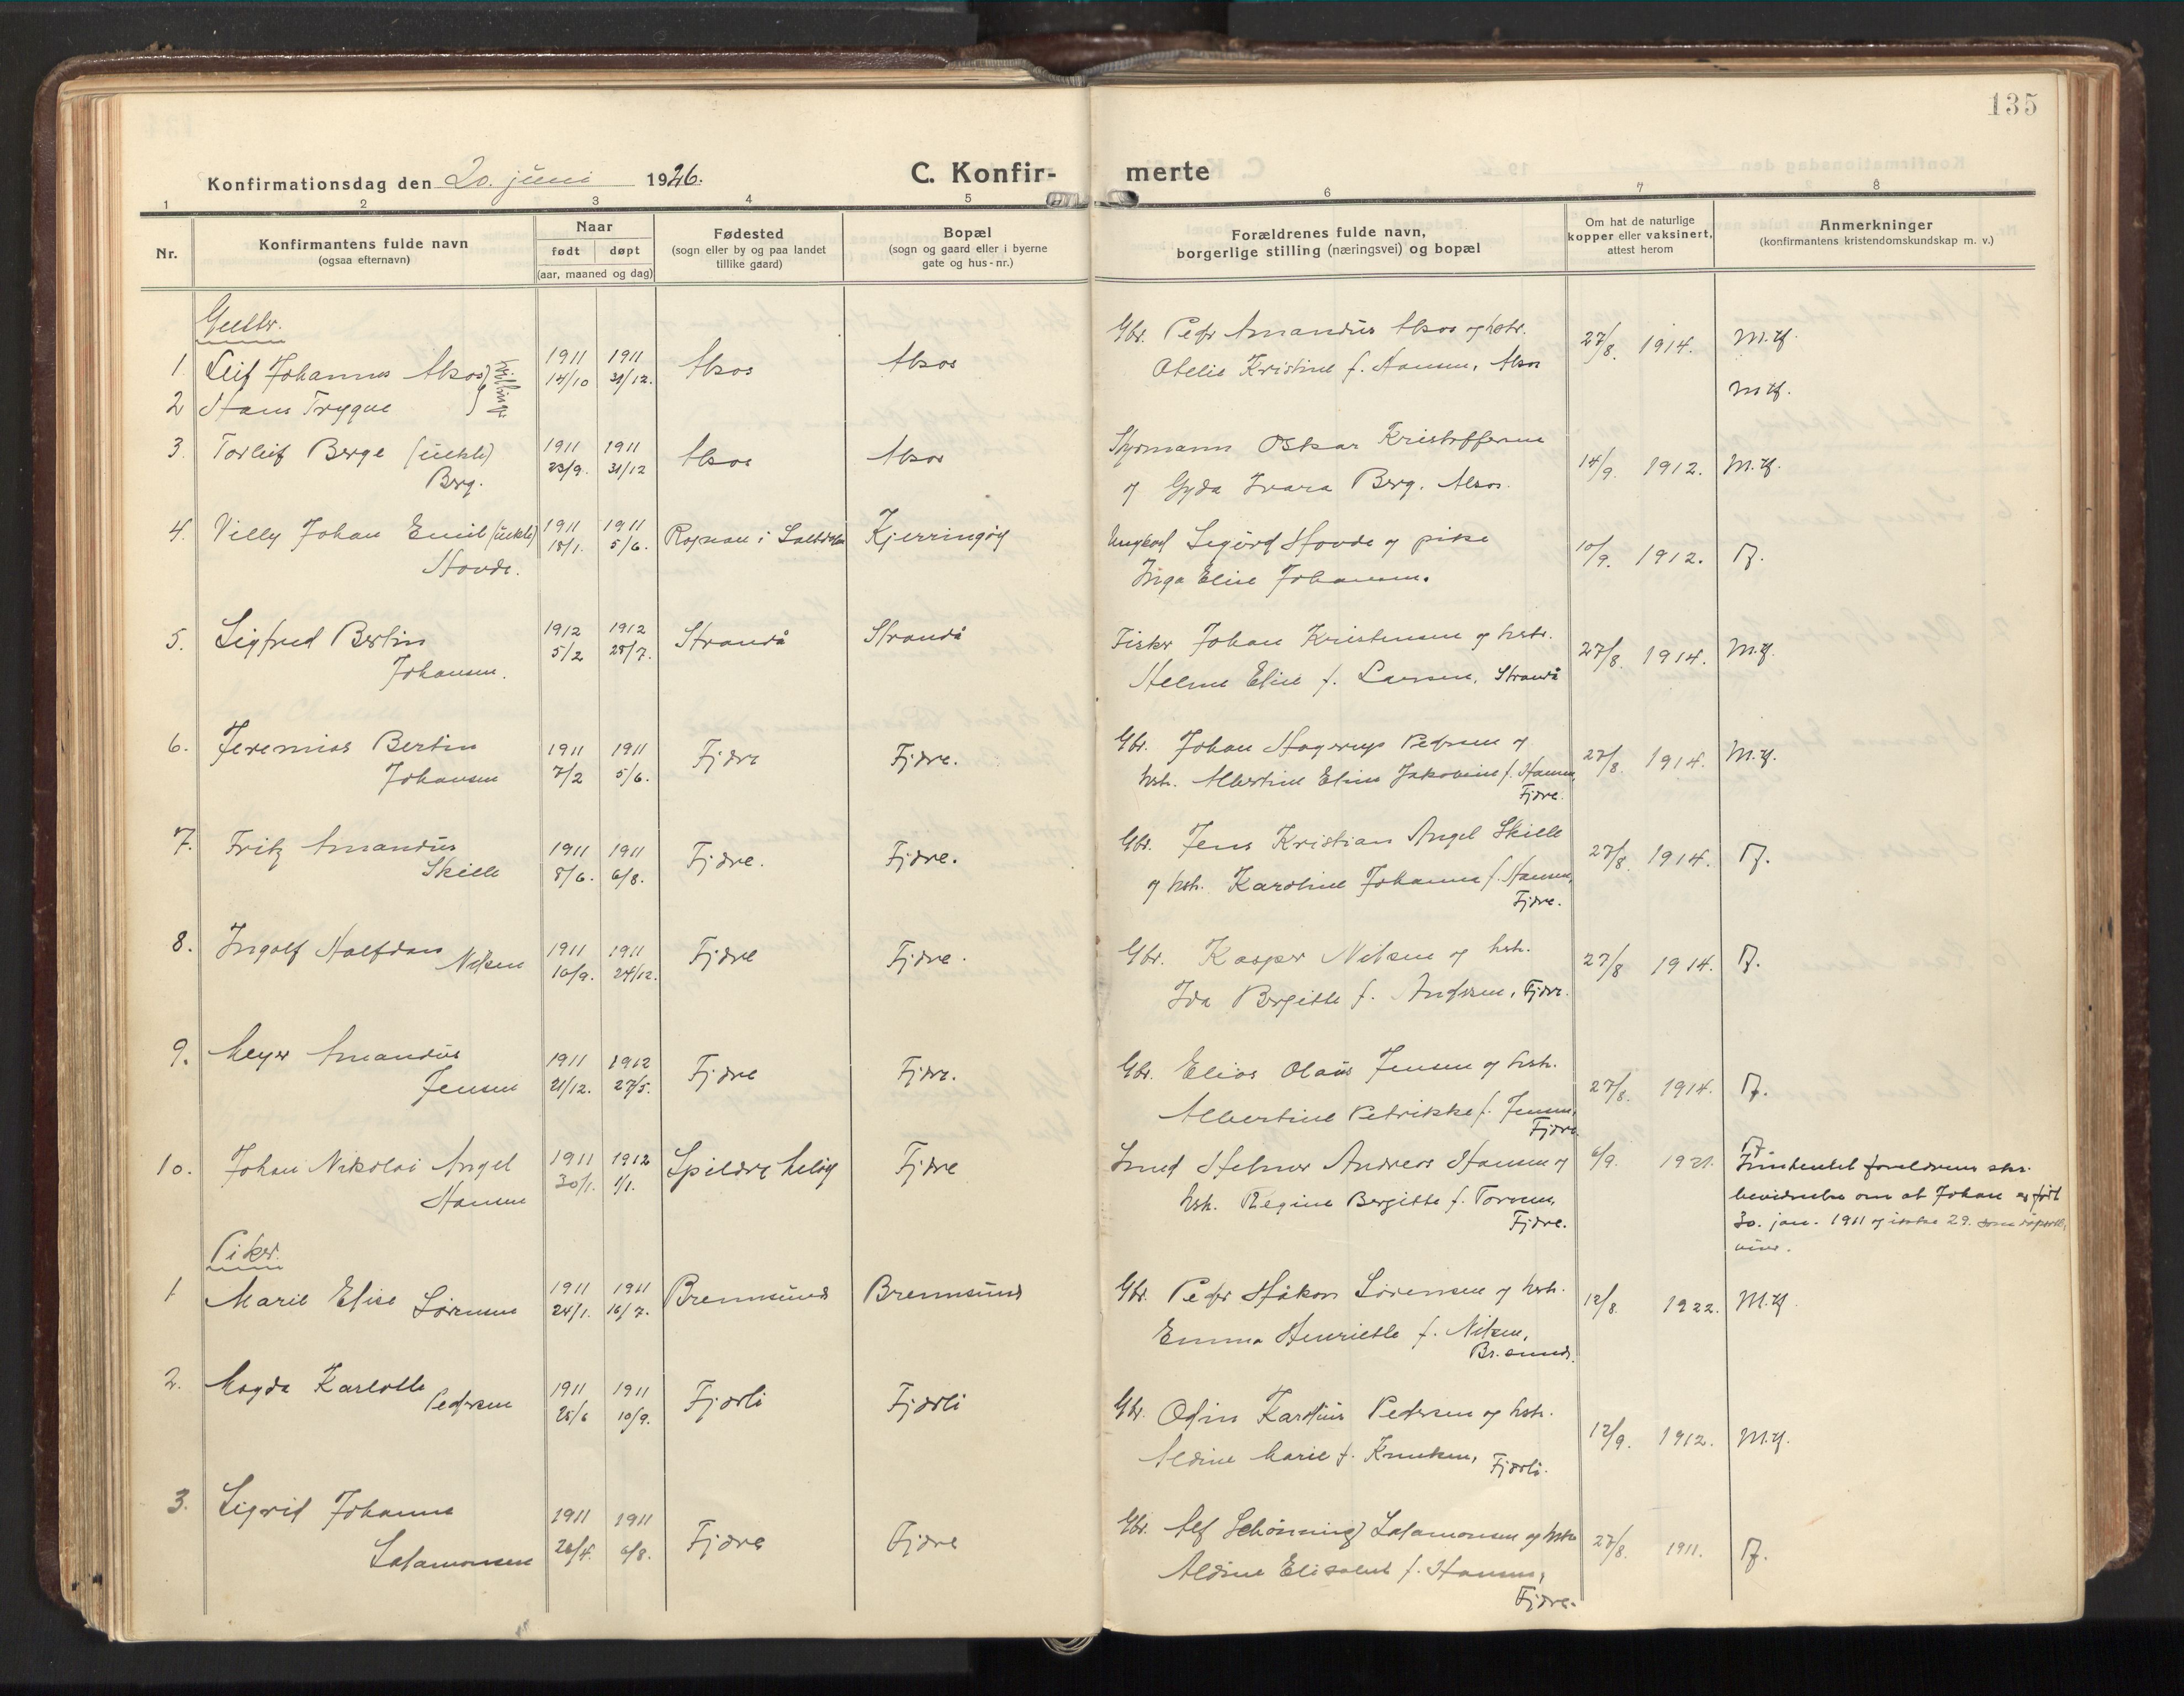 135
Konfirmationsdag den 20. juni 1926.
C. Konfir-
merte
1 2 3 4 5 6 7 8
Nr.
Konfirmantens fulde navn
(ogsaa efternavn)
Naar
født døpt
(aar, maaned og dag)
Fødested
(sogn eller by og paa landet
tillike gaard)
Bopæl
(sogn og gaard eller i byerne
gate og hus-nr.)
Forældrenes fulde navn,
borgerlige stilling (næringsvei) og bopæl
Om hat de naturlige
kopper eller vaksinert,
attest herom
Anmerkninger
(konfirmantens kristendomskundskap m. v.)
Gutter.
1 Leif Johannes Alsos } tvillinger 1911 14/10 1911 31/12. Alsos Alsos
Gbr. Peder Amandus Alsos og hstr. 27/8. 1914. M.tf.
Otelie Kristine f. Hansen, Alsos
2 Hans Trygve M.tf.
3. Torleif Berge (uekte) 1911 23/9. 1911 31/12 Alsos Alsos
Berg.
Styrmann Oskar Kristoffersen 14/9. 1912. M.tf.
og Gyda Ivara Berg. Alsos.
4. Villy Johan Emil (uekte) 1911 18/1. 1911 5/6. Rognan i Saltdalen Kjerringøy
Hovde.
Ungkarl Sigurd Hovde og pike 10/9. 1912. Tf.
Inga Elise Johansen.
5. Sigfred Bertin 1912 5/2 1912 28/7. Strandå Strandå
Johansen.
Fisker Johan Kristensen og hstr. 27/8. 1914. M.tf.
Helene Elise f. Larsen, Strandå
6. Jeremias Bertin 1911 7/2 1911 5/6. Fjære Fjære.
Johansen
Gbr. Johan Hagerup Pedersen og 27/8. 1914. M.tf.
hstr. Albertine Elise Jakobine f. Hansen,
Fjære.
7. Fritz Amandus 1911 8/6. 1911 6/8. Fjære. Fjære.
Skille
Gbr. Jens Kristian Angel Skille 27/8. 1914. Tf.
og hstr. Karoline Johanna f. Hansen,
Fjære.
8. Ingolf Halfdan 1911 10/9. 1911 24/12. Fjære Fjære.
Nilsen
Gbr. Kasper Nilsen og hstr. 27/8 1914. Tf.
Ida Bergitte f. Andersen, Fjære.
9. Meyer Amandus 1911 21/12. 1912 27/5. Fjære Fjære.
Jensen
Gbr. Elias Olaus Jensen og hstr. 27/8. 1914. Tf.
Albertine Petrikke f. Jensen,
Fjære
10. Johan Nikolai Angel 1911 30/1. 1912 1/1. Spildre, Meløy Fjære
Hansen
Smed Helmer Andreas Hansen og 6/9. 1921. Tf.
hstr. Regine Bergitte f. Torsen,
Fjære.
Innhentet foreldrenes skr.
bevidnelse om at Johan er født
30. jan. 1911 og ikke 29. som dåpsatt.
viser.
Piker.
1 Marie Elise Sørensen 1911 24/1. 1911 16/7. Brennsund Brennsund
Gbr. Peder Håkon Sørensen og hstr. 12/8. 1922. M.tf.
Emma Henriette f. Nilsen,
Br.sund.
2. Magda Karlotte 1911 25/6 1911 10/9. Fjærli Fjærli
Pedersen
Gbr. Odin Kardius Pedersen og hstr. 12/9. 1912. M.tf.
Aldine Marie f. Knutsen, Fjærli.
3. Sigrid Johanne 1911 26/4. 1911 6/8. Fjære Fjære
Salamonsen
Gbr. Alf Schønning Salamonsen og hstr. 27/8. 1911. Tf.
Aldine Elisabet f. Hansen,
Fjære.